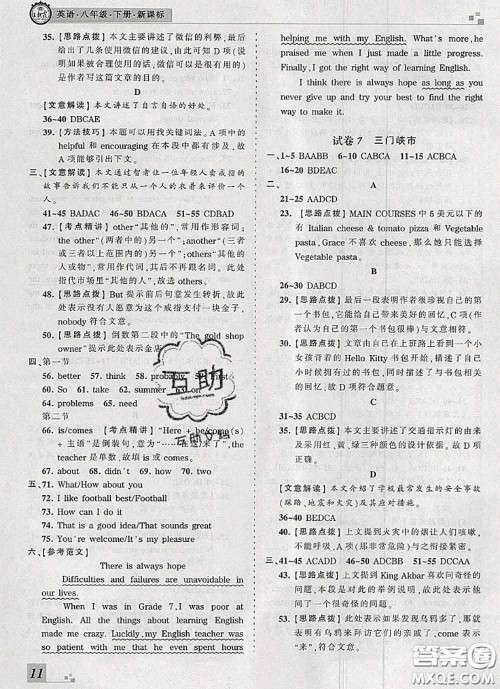 英语·八年级·下册·新课标
35.【思路点拨】本文主要讲述了微信的利弊,最后给出了几条使用微信的建议,由此可知 D 项(如果被合理使用的话,微信可以是有用的)是作者写这篇文章的目的。
D
【文意解读】本文讲述了自言自语的好处。
36~40 DBCAE
39.【方法技巧】本题可以用找关键词法。A 项中的 helpful 和 encouraging 在本段中都有体现,所以选择 A。
三、【文意解读】本文通过智者让一位年轻人卖戒指的故事告诉我们不要从一个人的衣着来评价一个人。
41~45 BADAC 46~50 DBACA 51~55 CDBAD
47.【考点精讲】other“其他的”,常用作形容词;the other“(两者中的)另一个”;another“(三者或三者以上范围内的)另一个”;others“其他人(物)”,常用作代词,其后不再跟名词。此处指代市场里“其他的人”,故选 others。
48.【思路点拨】But 提示前后句意发生转折,故此处表示没有人愿意为这个戒指支付一块金子,nobody 符合文意。
50.【思路点拨】倒数第二段中的“The gold shop owner”提示此处表示金店
四、第一节
56. better 57. think 58. probably
60. So 61. take 62. summer 63. on
64. problems 65. need
第二节
66. is/comes 【考点精讲】“Here + be/come(s) + 主语”是倒装句式,意为
67. about 68. didn't 69. how 70. two
五、71. What/How about you
72. I like football best/Football
73. How about you
74. That is a good idea/That's great
75. You're welcome/It's my pleasure
六、【参考范文】
There is always hope
Difficulties and failures are unavoidable in
our lives.
When I was in Grade 7, I was poor at
English. All the things about learning English
made me crazy. Luckily,my English teacher was
so patient with me that he even spent hours
helping me with my English. He also praised
me when I just made a little progress.
Finally,I got the right way of learning English.
I think there is always hope as long as you
never give up and try your best to find the right
way to make it.
试卷 7 三门峡市
一、1~5 BAABB 6~10 CABCA 11~15 ACBCA
16~20 BDEAC
二、
A
21~25 AADCD
23.【思路点拨】MAIN COURSES 中 5 美元以下的有 Italian cheese & tomato pizza 和 Vegetable pasta,Grace 不喜欢 cheese,那么她只能选择 Vegetable pasta。
B
26~30
30.【思路点拨】本文的标题表明作者很珍视自己的第一个书包,它代表着一段美好的回忆,C 项(作者认为自己的第一个书包很特别)与文意相符。
28.【思路点拨】文章由作者在上班路上看到一个小女孩背着的 Hello Kitty 书包开始,描述了一段与书包相关的回忆,故 D 项符合题意。
C
31~35 ACBCD
35.【思路点拨】本文主要讲述了交通指示灯的由来及采用红、黄、绿三种颜色的设计依据。故 D 项正确。
D
【文意解读】本文介绍了学校最常发生的安全事故(踩踏、地震和火灾)及其应对措施。
36~40 BEDCA
40.【思路点拨】上文提到火灾中的烟让人们咳嗽,不能呼吸,A 项(那非常非常危险)承接上文,符合文意。
三、41~45 ADABD 46~50 ACDBB 51~55 DCCAA
44.【思路点拨】上文提到 King Akbar 喜欢问奇怪的问题。本段是对此的举例说明,故此处表示“有一天”。
53.【思路点拨】上文提到如果发现乌鸦多了,那就表示有乌鸦来拜访它们的亲戚了,comes 符合文意。
11
互助
互助文
答案圈
MXQE.COM